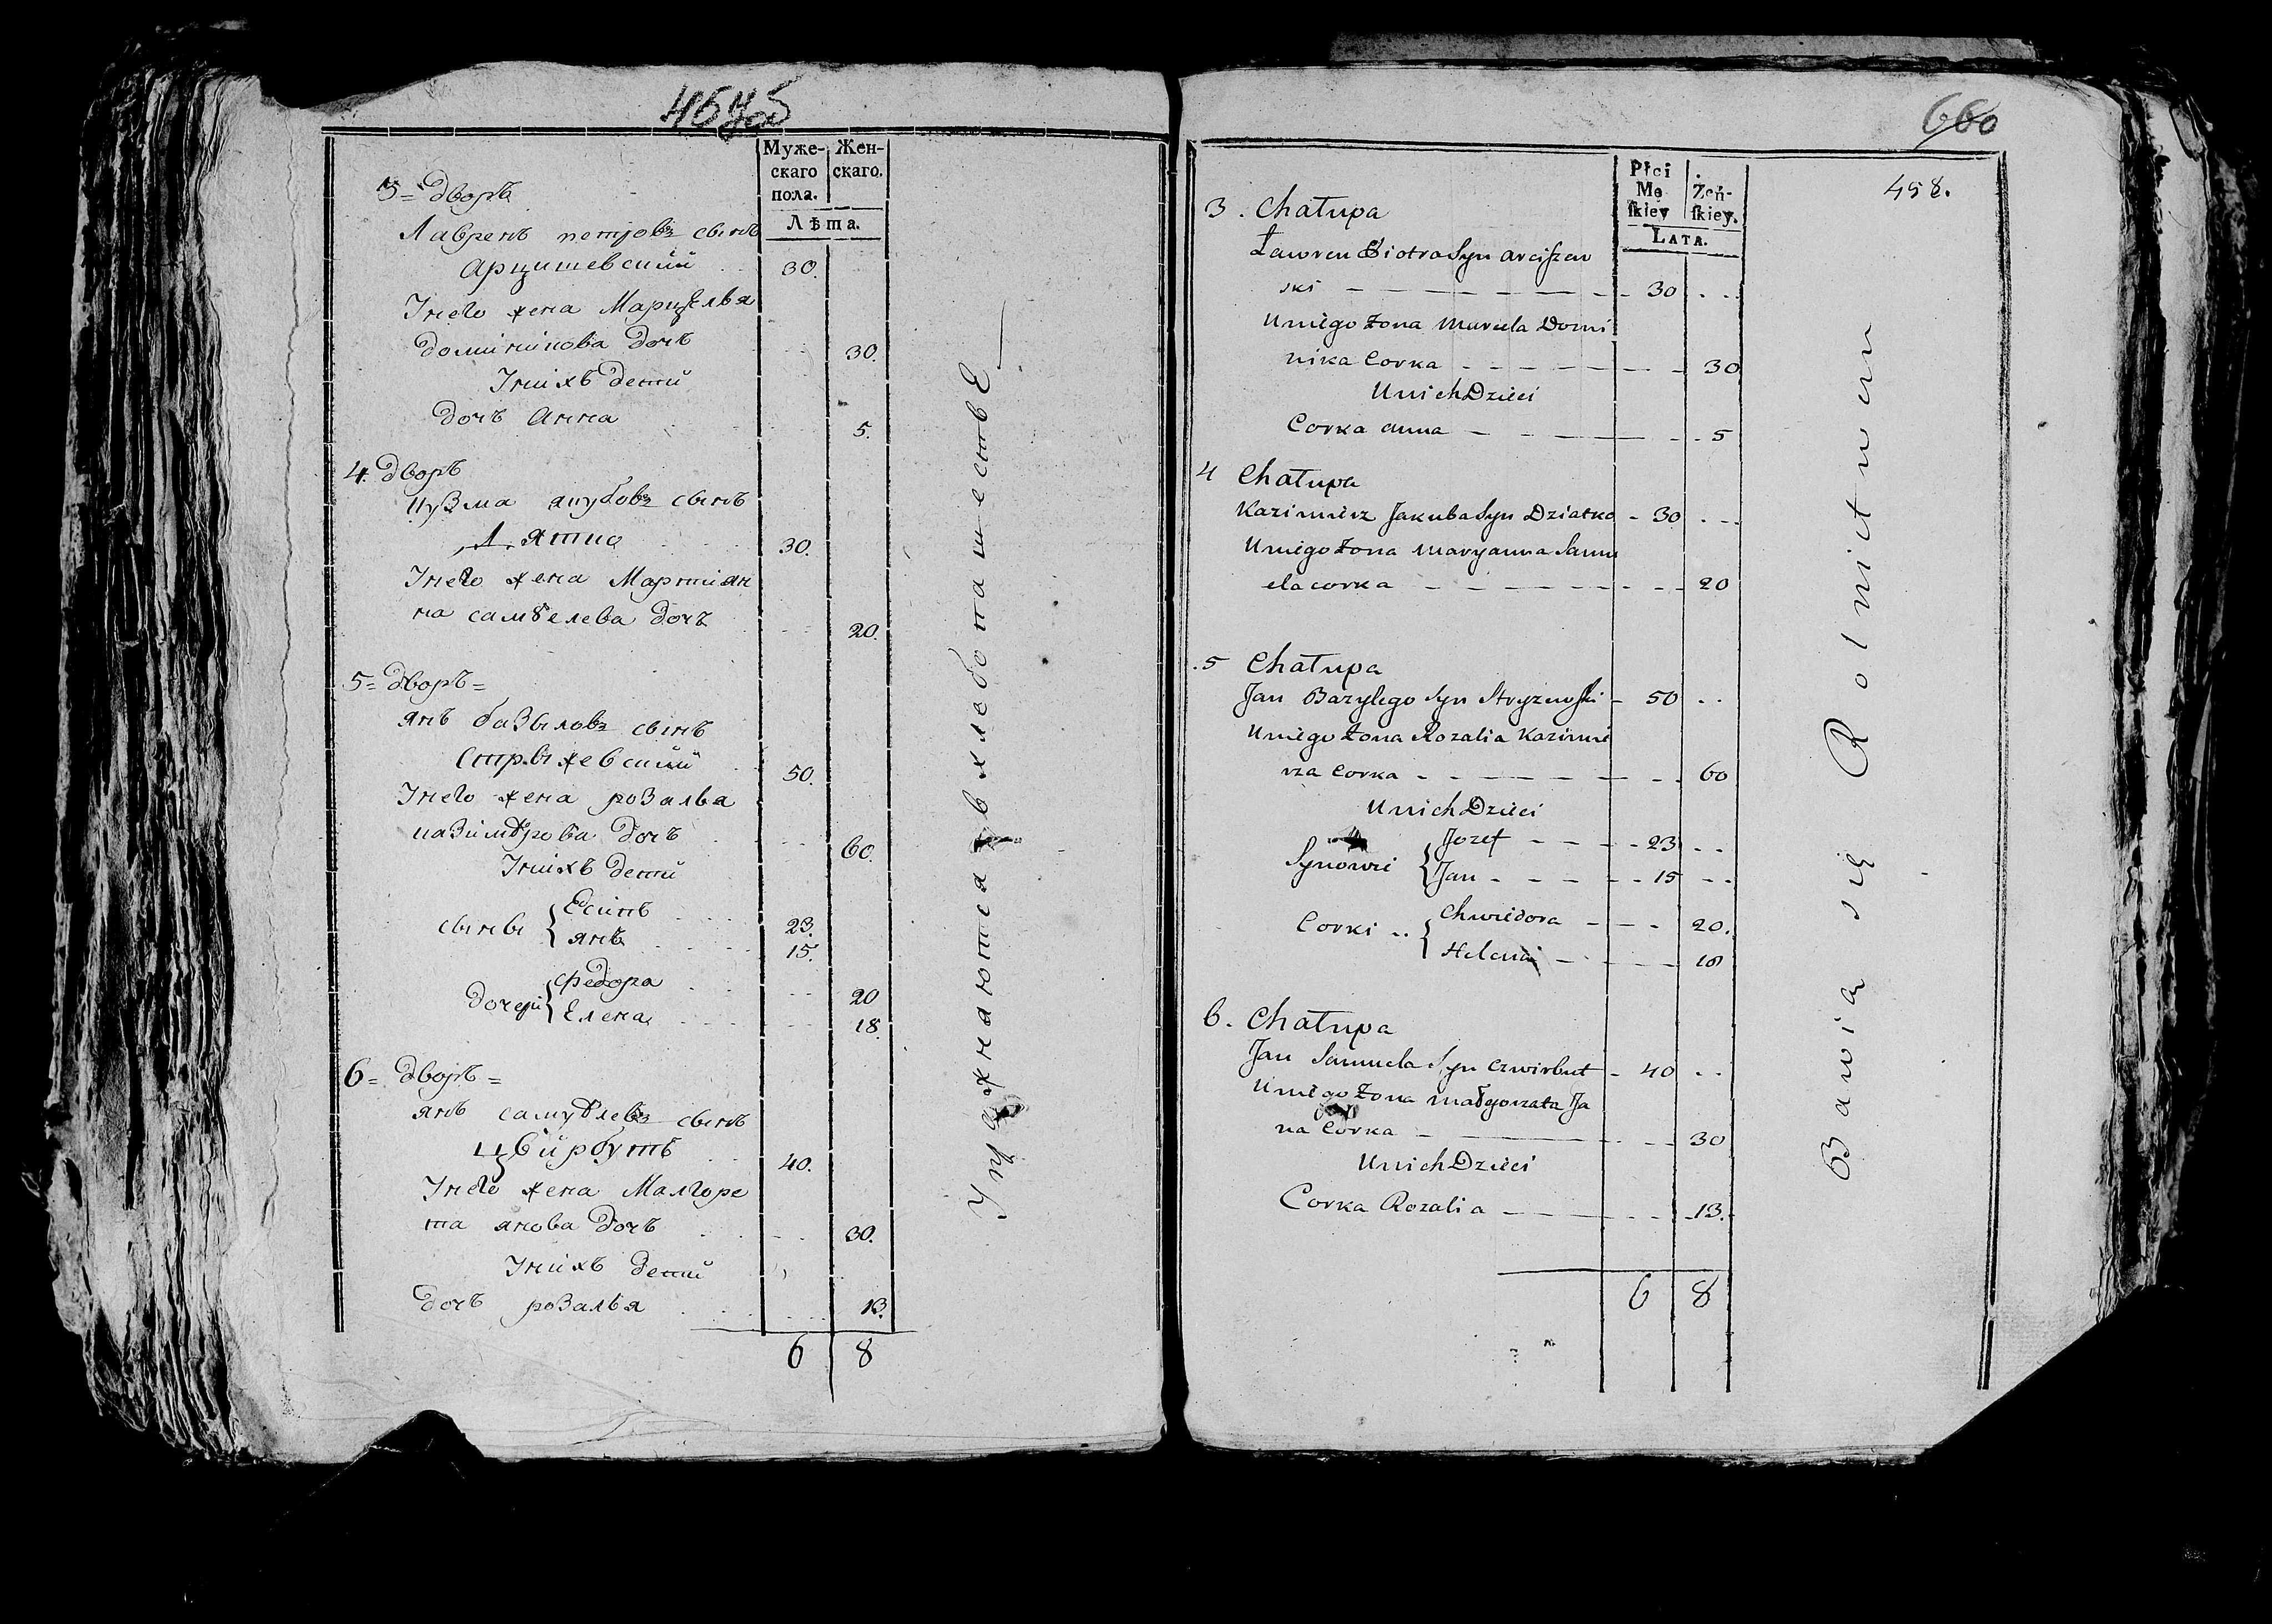 Муже-
скаго
пола.
Жен-
скаго.
Лѣта.
3= дворъ
Лавренъ петровъ сынъ
Арцишевскій 30.
Унего жена Марцѣлья
доминикова дочъ 30.
Унихъ дети
дочъ Анна 5.
4. дворъ
кузма якубовъ сынъ
Дятко 30.
Унего жена Мартиян
на самуелева дочъ 20.
5= дворъ=
янъ базыловъ сынъ
Стрыжевскій 50.
Унего жена розалья
казимѣрова дочъ 60.
Унихъ дети
сыны { Есипъ 23.
янъ 15.
дочери { федора 20
Елена 18.
6= дворъ=
янъ самуѣлевъ сынъ
Цвирбутъ 40.
Унего жена Малгоре
та янова дочъ 30.
Унихъ дети
дочъ розалья 13.
6 8
Упражнаются в хлебопашествЕ
660
458.
Płci
Mę
ſkiey
Żeń-
ſkiey.
LATA.
3. Chałupa
Ławren Piotra Syn arciszew
ski 30
Uniego Żona Marcela Domi
nika Corka 30
Unich Dzieci
Corka anna 5
4 Chałupa
Kazimierz Jakuba Syn Dziatko 30
Uniego Żona Maryanna Samu
ela corka 20
5 Chałupa
Jan Bazylego Syn Stryzewski 50
Uniego Żona Rozalia Kazimie
rza Corka 60
Unich Dzieci
Synowie { Jozef 23
Jan 15
Corki { Chwiedora 20.
Helena 18
6. Chałupa
Jan Samuela Syn Czwirbut 40
Uniego Żona Małgorzata Ja
na Corka 30
Unich Dzieci
Corka Rozalia 13.
6 8
Bawia się Rolnictwem